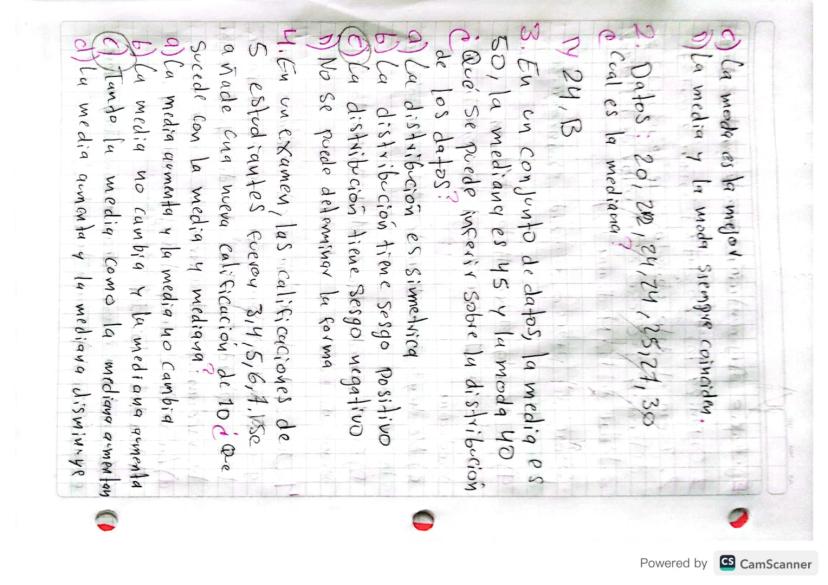 c) La moda es la mejor
d) La media y la moda siempre coinciden.
2. Datos: 20, 22, 24, 24, 25, 27, 30
¿Cual es la mediana?
R/ 24, B
3. En un conjunto de datos, la media es
50, la mediana es 45 y la moda 40
¿Qué se puede inferir sobre la distribución
de los datos?
a) La distribución es simetrica
b) La distribución tiene sesgo positivo
c) La distribución tiene sesgo negativo
D) No se puede determinar la forma
4. En un examen, las calificaciones de
5 estudiantes fueron 3,4,5,6,7. se
añade una nueva calificacion de 10 ¿Que
sucede con la media y mediana?
a) La media aumenta y la media no cambia
b) La media no cambia y la mediana aumenta
c) Tanto la media como la mediana aumentan
d) La media aumenta y la mediana disminuye
Powered by CS CamScanner